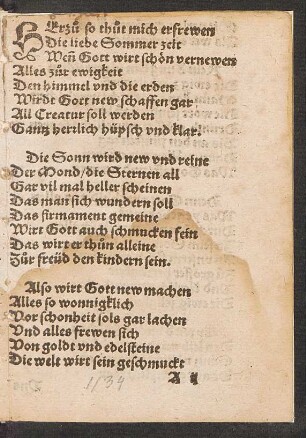 HErzů so thůt mich erfrewen
Die liebe Sommer zeit
Weñ Gott wirt schön vernewen
Alles zůr ewigkeit
Den himmel vnd die erden
Wirdt Gott new schaffen gar
All Creatur soll werden
Gantz herrlich hüpsch vnd klar.
Die Sonn wird new vnd reine
Der Mond/ die Sternen all
Gar vil mal heller scheinen
Das man sich wundern soll
Das firmament gemeine
Wirt Gott auch schmucken fein
Das wirt er thůn alleine
Zůr freüd den kindern sein.
Also wirt Gott new machen
Alles so wonnigklich
Vor schonheit sols gar lachen
Vnd alles frewen sich
Von goldt vnd edelsteine
Die welt wirt sein geschmuckt
A ij
1534